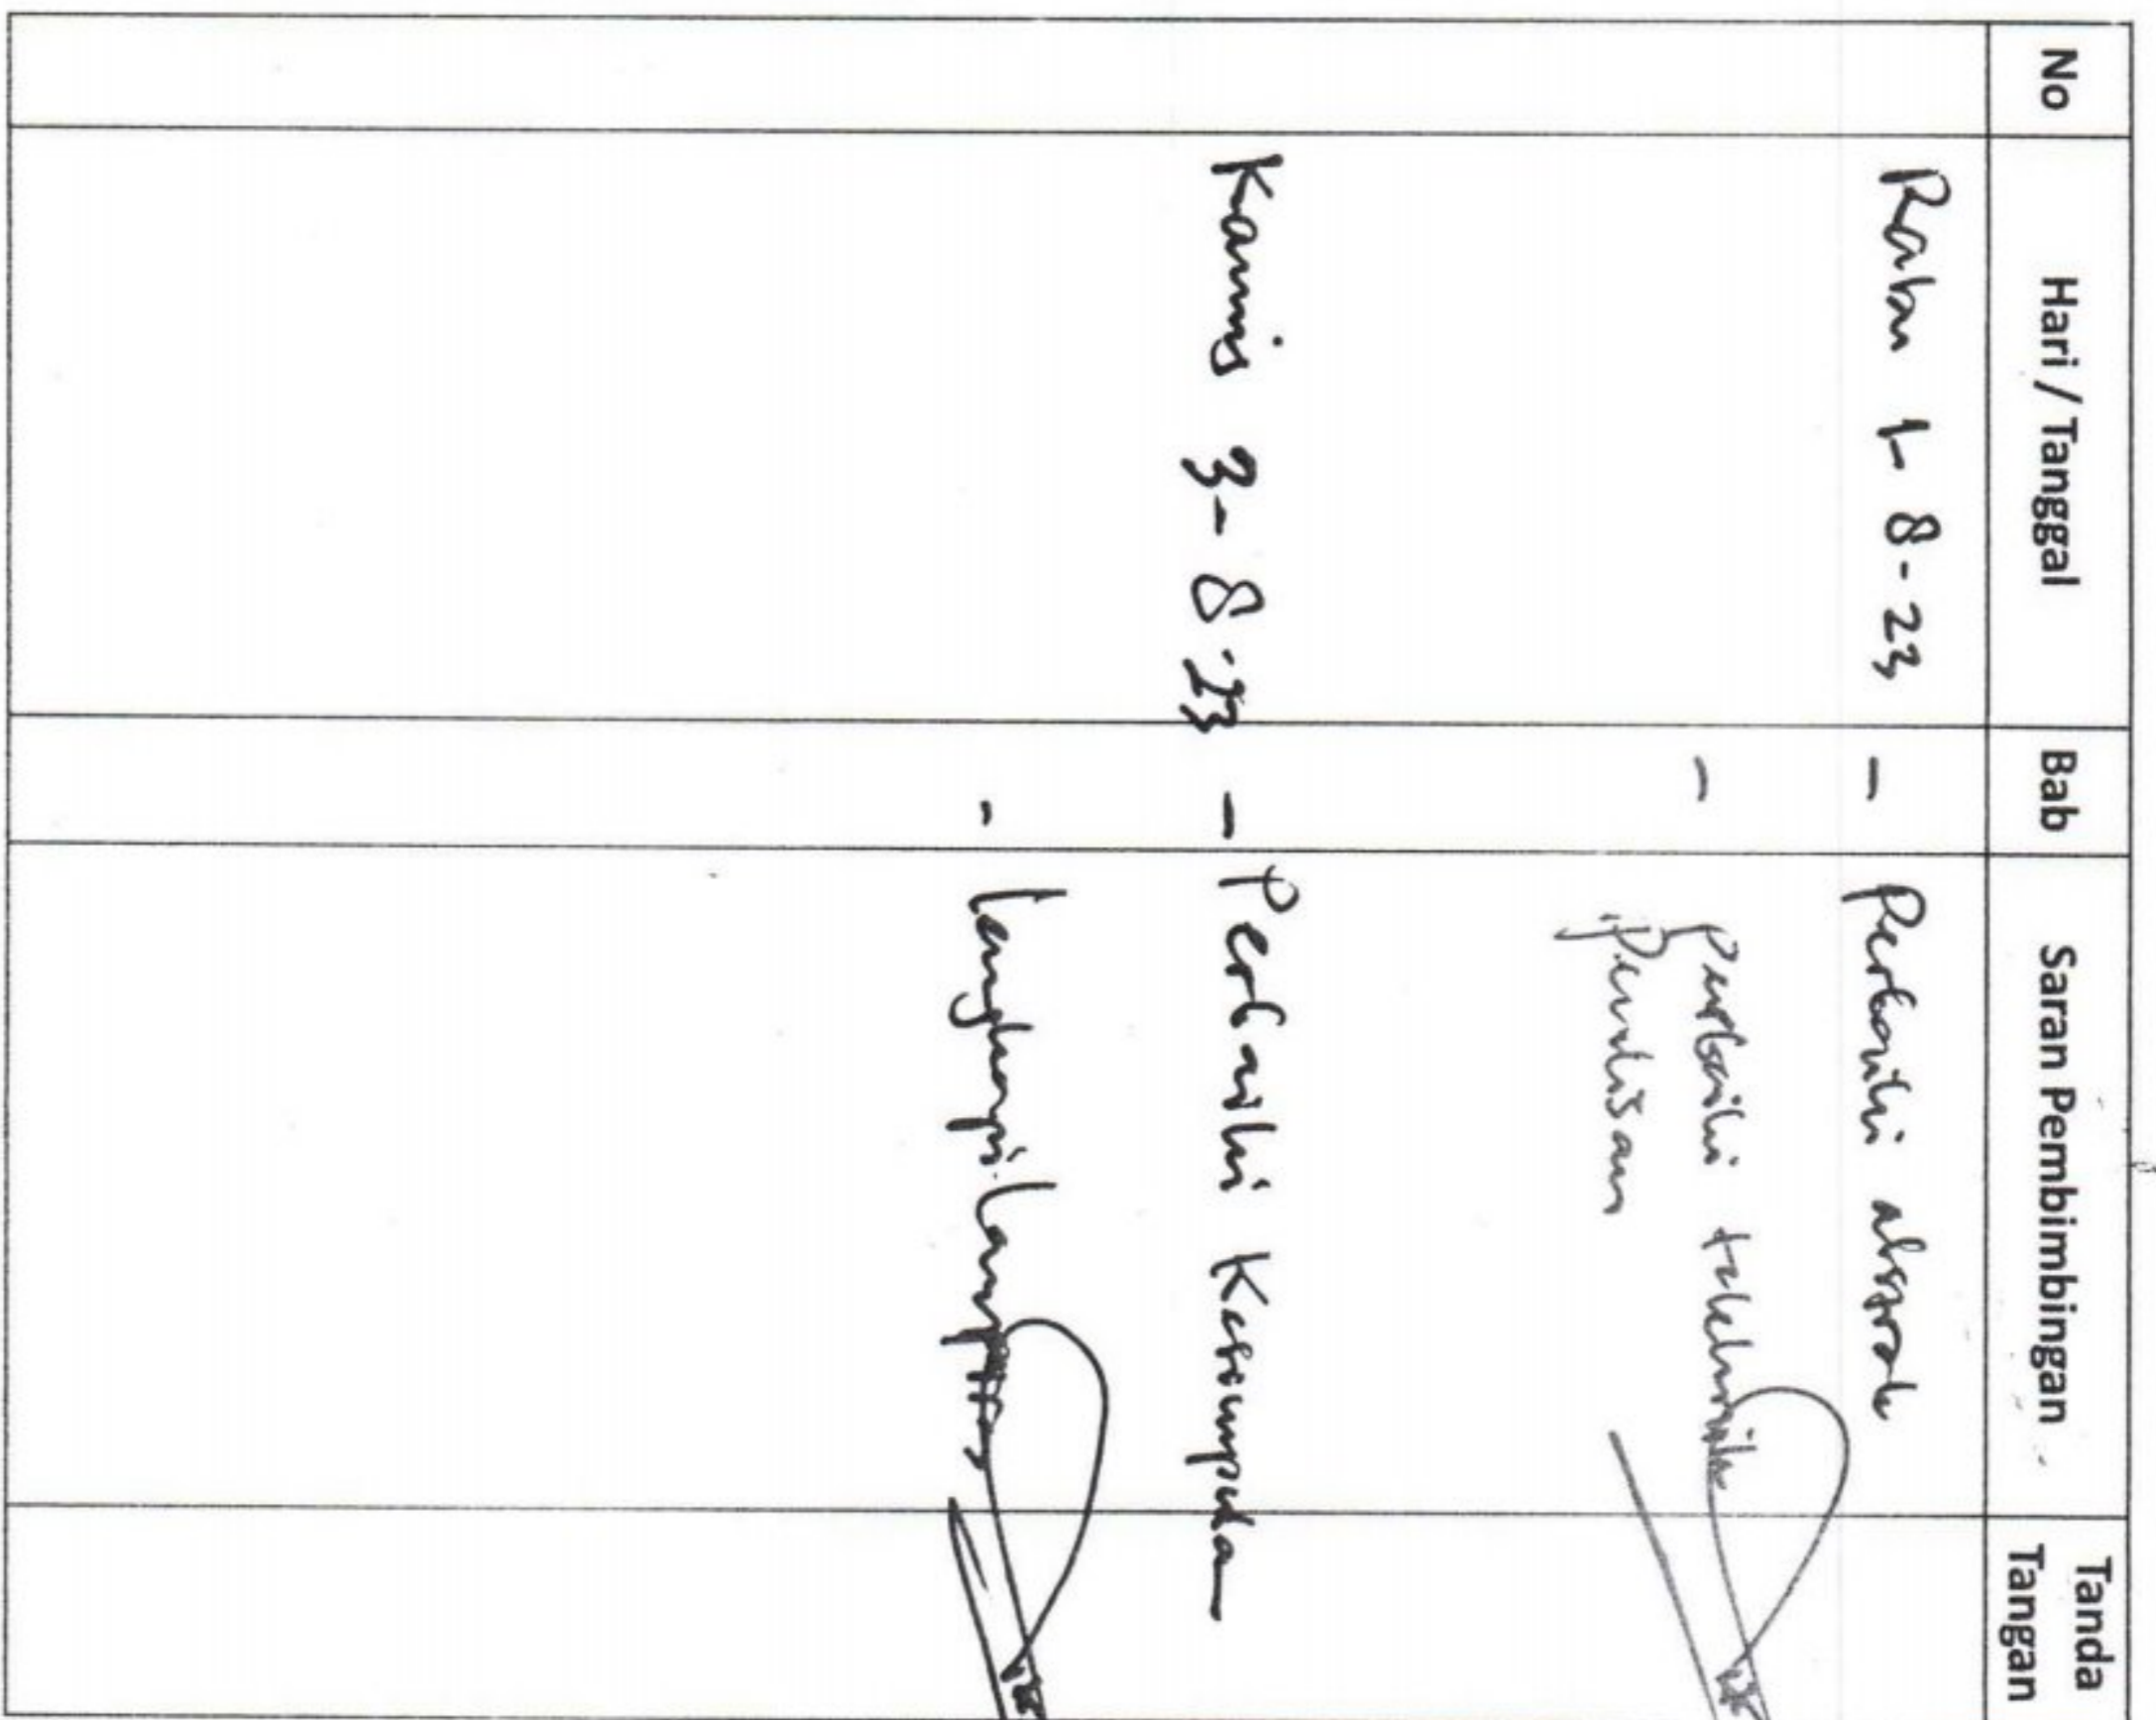 No Hari / Tanggal Bab Saran Pembimbingan Tanda
Tangan
Rabu 1-8-23 - Perbaiki abstrak
- Perbaiki teknik
penulisan
Kamis 3-8-23 - Perbaiki Kesimpulan
- Lengkapi